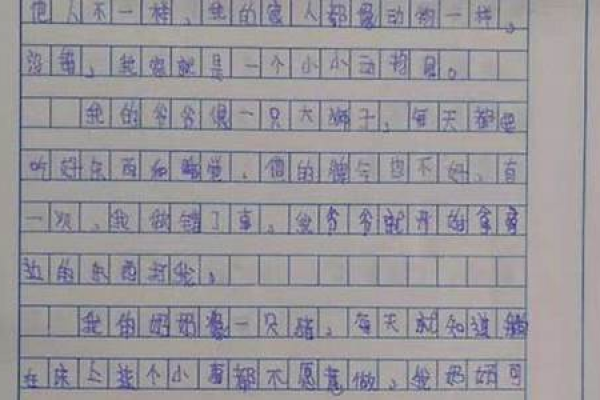 他人不一样，我的家人都像动物一样，
没错，我家就是一个小小动物园。
我的爷爷像一只大狮子，每天都
吃好东西和睡觉，他的脾气也不好，有
一次，我做错了事，我爷爷就用的拿旁
边的东西打我。
我的奶奶像一只猪，每天就知道躺
在床上连个小事都不愿意做，我奶奶可